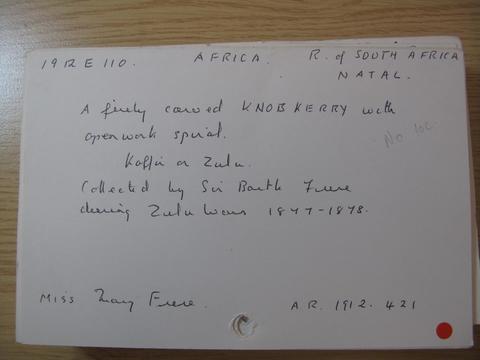 1912 E 110. AFRICA. R. of SOUTH AFRICA
NATAL.
A finely carved KNOBKERRY with
openwork spiral.
No loc.
Kaffir or Zulu.
Collected by Sir Bartle Frere
during Zulu Wars 1877-1878.
Miss Mary Frere. A.R. 1912. 421